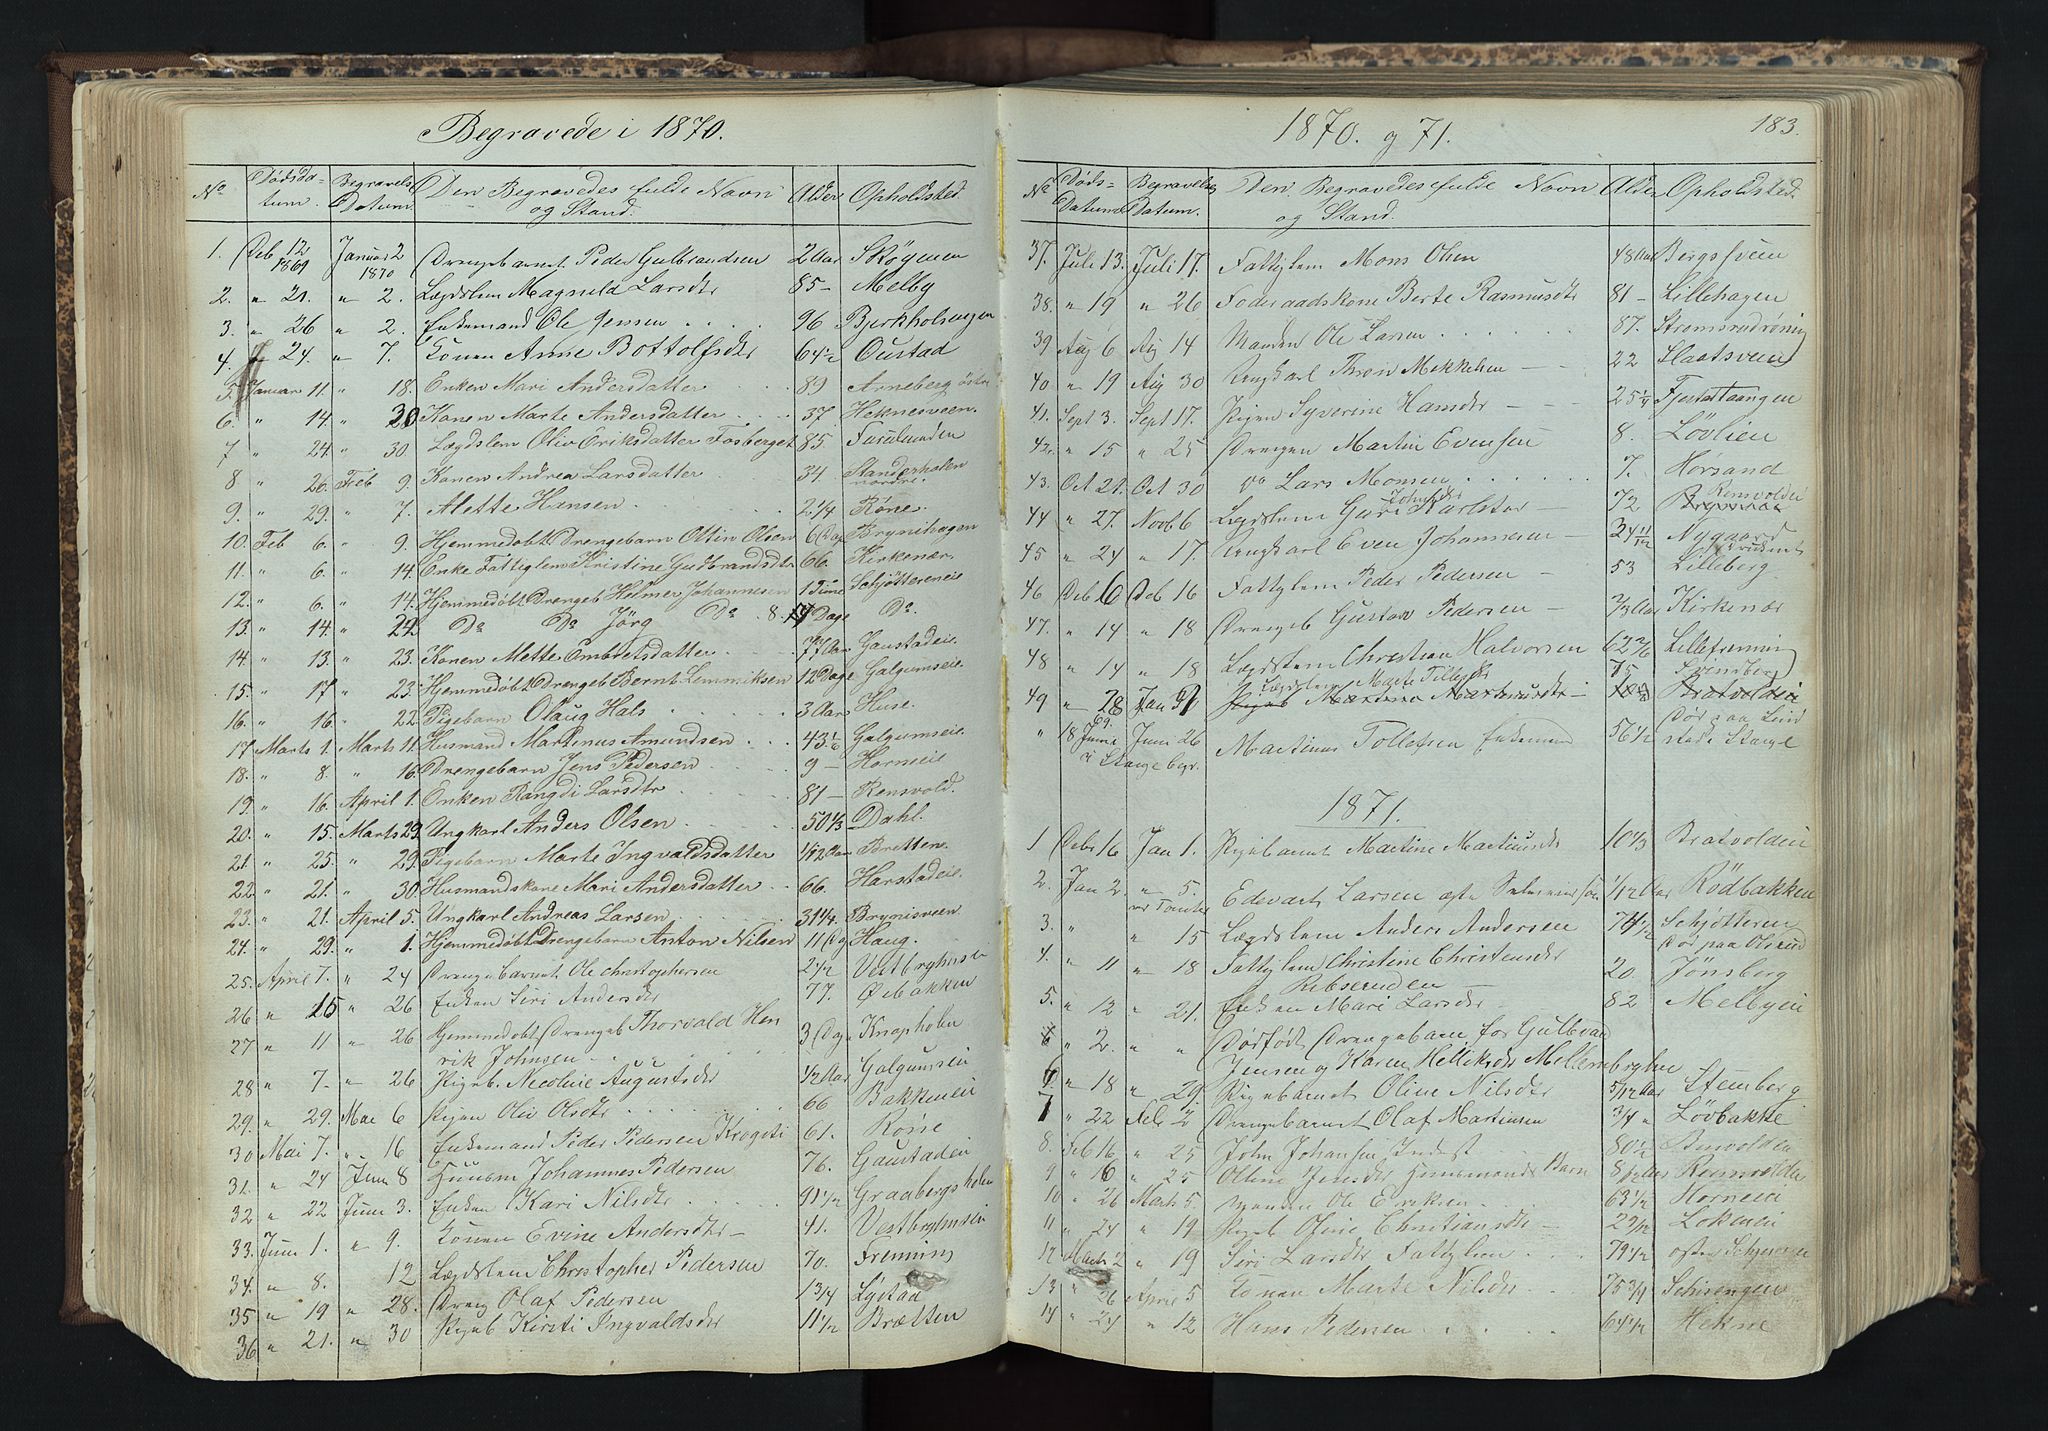 Begravede i 1870.
No Dødsdatum. Begravels Datum. Den Begravedes fulde Navn og Stand. Alder Opholdsted.
1. Deb 12 1869 Januar 2 1870 Drengebarnet Peder Gulbrandsen 2 Aar Skøgmen
2. " 21. " 2. Lægdslem Magnild Larsdtr 85 - Melby
3. " 26 " 2. Enkemand Ole Jensen 96 Bjerkholseng en
4. " 24. " 7. Konen Anne Bottolfsdtr 64 1/2 Oustad
5. Januar 11. " 18. Enken Mari Andersdatter 89 Arneberg østre
6. " 14. " 30 Konen Marte Andersdatter 37. Heknesveen.
7 " 24 " 30 Lægdslem Oliv Eriksdatter Fosberget 85 Furulunden
8 " 26. Feb 9. Konen Andrea Larsdatter 34 Standerholen nordre.
9. " 29. " 7. Alette Hansen 2 1/4 Røne.
10. Feb 6. " 9. Hjemmedøbt Drengebarn Ottin Olsen 6 Dag Brynihagen
11. " 6. " 14. Enke Fattiglem Kristine Gudbrandsdtr 66. Kirkenær.
12. " 6. " 14. Hjemmedøbt Drengeb Helmer Johannesen 1 Time Schjøttereneie
13. " 14. " 24. Do Do Jörg Do 8. Dage Do.
14 " 13. " 23. Konen Mette Ombretsdatter 77 Aar Gaustadeie.
15. " 17. " 23. Hjemmedøbt Drengeb Bernt Lemmiksen 12 Dage Galgumseie.
16. " 16. " 22. Pigebarn Olaug Hals 3 Aar Huse.
17 Marts 1. Marts 11. Husmand Martinus Amundsen 43 1/2 Galgumseie.
18. " 8. " 16. Drengebarn Jens Pedersen 9 - Horneie
19 " 16. April 1. Enken Rangdi Larsdtr 81 - Rensvold.
20. " 15. Marts 29. Ungkarl Anders Olsen 50 1/3 Dahl.
21. " 25. " 29. Pigebarn Marte Ingvaldsdatter 1/12 Aar Bretten.
22. " 21. " 30. Husmandskone Mari Andersdatter 66. Harstadeie.
23. " 21. April 5. Ungkarl Andreas Larsen 31 1/4. Brynisveen
24. " 29. " 1. Hjemmedøbt Drengebarn Anton Nilsen 11 Dg Haug.
25. April 7. " 24 Drengebarnet Ole Christophersen 2 1/2 Vestbyhusei
26 " 15 " 26 Enken Siri Andersdtr 77. Øibakken
27 " 11 " 26 Hjemmedøbt Drengeb Thorvald Hen
rik Johnsen 3 Dage Knapholen
28 " 7. " 26 Pigeb. Nicoline Augustsdtr 1/2 Aar Galgumseie
29. " 29. Mai 6 Pigen Oliv Olsdtr 66 Bakkeneie
30 Mai 7. " 16 Enkemand Peder Pedersen Krogsti 61. Røne
31. " 24 Juni 8 Huusm Johannes Pedersen 76. Gaustadeie
32 " 22 Juni 3. Enken Kari Nilsdtr 91 1/2 Graabergsholen
33. Juni 1. " 9. Konen Evine Andersdtr 41. Vestbyhusei
34. " 8. " 12 Lægdslem Christopher Pedersen 70. Frenning
35 " 19 " 28. Dreng Olaf Pedersen 1 3/4 Lystad
36 " 21. " 30 Pigeb Kirsti Ingvaldsdtr 11 1/2 Brætten
1870. g 71.
183.
No Døds- Datum Begravelses Datum. Den Begravedes fulde Navn og Stand. Alder Opholdsted.
37. Juli 13. Juli 17. Fattiglem Mons Olsen 48 Aar Bergssveen
38. " 19 " 26 Føderaadskone Berte Rasmusdtr 81 - Lillehagen
39 Aug 6 Aug 14 Manden Ole Larsen 87. Strømsrudrøning
40 " 19 Aug 30 Ungkarl Thron Mekkelsen 22 Slaatsveen
41. Sept 3. Sept 17. Pigen Syverine Hansdtr 25 1/4 Fjeststaangen
42. " 15 " 25 Drengen Martin Evensen 8. Løvlien
43. Oct 21. Oct 30 do Lars Monsen 7. Hørsand
44 " 27. Novb 6 Lægdslem Guri Johnsdtr Karlstor 72 Rensvolden
45 " 24 " 17. Ungkarl Even Johannesen 34 11/12 Nygaard
46 Deb 6 Deb 16 Fattiglem Peder Pedersen 53 Lilleberg
47. " 14 " 18 Drengeb Gustav Pedersen 2/3 Aar Kirkenær
48 " 14 " 18 Lægdslem Christian Halvorsen 62 2/6 Lillefrenning
49 " 28 Jan Lægdslem Marte Tillesdtr 75 Svinsberg
Pigeb Martine Martinusdtr Bratvoldeie
" 18 Juni 69. Juni 26 Martinus Tollefsen Enkemand 56 1/2 Død paa Lind
i Stange begr. stad i Stange
1871.
1 Debr 16 Jan 1. Pigebarnet Martine Martinusdtr 10 1/3 Bratvoldeie
2. Jan 2. " 5. Edevart Larsen 1/12 Aar Rødbakken
3. " " 15 Lægdslem Anders Andersen 74 1/2 Schjøtteren Død paa Olsrud
4. " 11 " 18 Fattiglem Christine Christensdtr
Ribseruden 20. Jønsberg
5. " 12 " 21. Enken Mari Larsdtr 82 Melbyeie
" 2. " " Dødfødt Drengebarn for Gulbrand
Jensen og Karen Helliksdtr Mellembyhue
6 " 18 " 29. Pigebarnet Oline Nilsdtr 5/12 Aar Stumberg
7 " 22 Feb 2 Drengebarnet Olaf Martinsen 3/4 " Løvbakke
8. Feb 16 " 25 John Johansen Inderst 80 1/2
9 " 16 " 25. Oline Jensdtr Huusmands Barn 8/12 Aar Rensvolden
10 " 26 Marts 5. Manden Ole Eriksen 63 1/2 Horneie
11 " 24 " 19 Pigeb Oline Christiansdtr 2 9/12 Løkeneie
12 Marts 2 " 19 Siri Larsdtr Fattiglem 79 1/2
13 " 26 April 5 Konen Marte Nilsdtr 75 3/4 Schisengen
14 " 24 " 12 Hans Pedersen 64 1/2 Hekne